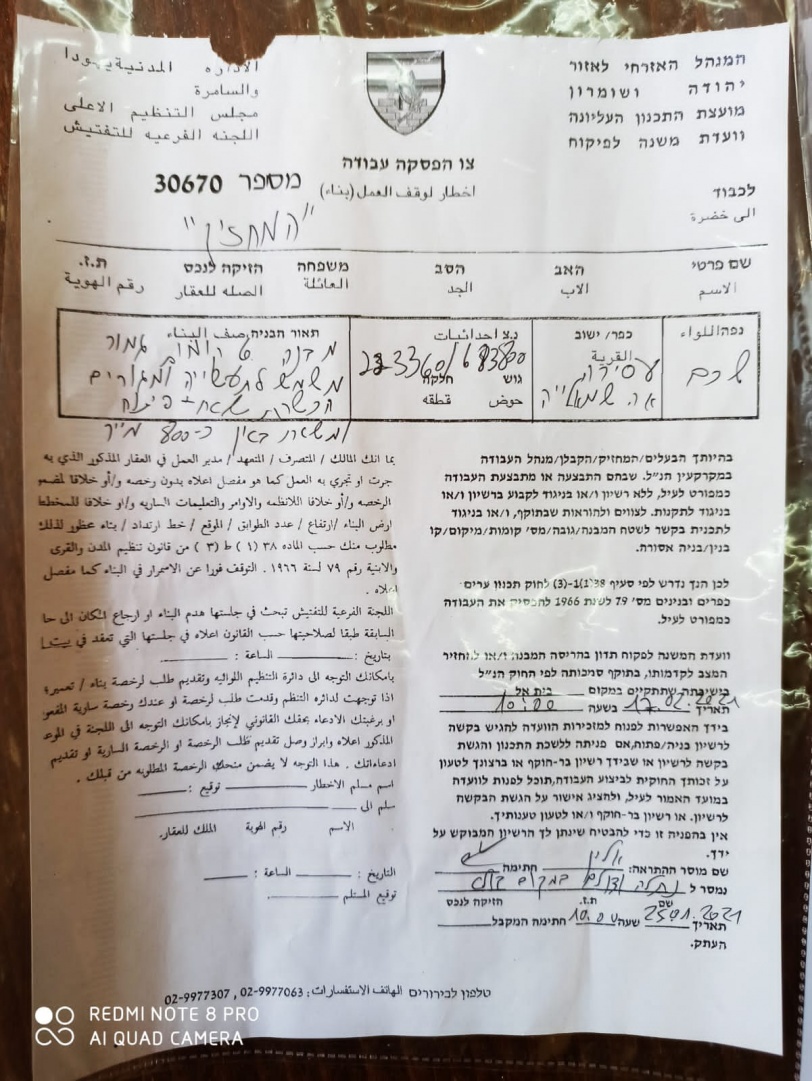 המנהל האזרחי לאזור
יהודה ושומרון
מועצת התכנון העליונה
וועדת משנה לפיקוח
الاداره المدنية يهودا
والسامرة
مجلس التنظيم الاعلى
اللجنه الفرعيه للتفتيش
צו הפסקה עבודה
اخطار لوقف العمل (بناء)
מספר 30670
לכבוד
الى خضرة
"המחזיק"
שם פרטי האב הסב משפחה הזיקה לנכס ת.ז.
الاسم الاب الجد العائلة الصله للعقار رقم الهوية
נפה اللواء
שכם
כפר/ ישוב
القرية
עסירה
א שמאלייה
נ.צ احداثيات
גוש חלקה
حوض قطقه
תאור הבניה, صف البناء
מבנה
משמש לתעשייה ומגורים
הכשרת שטח +
בהיותך הבעלים/המחזיק/הקבלן/מנהל העבודה
במקרקעין הנ"ל. שבהם התבצעה או מתבצעת העבודה
כמפורט לעיל, ללא רשיון ו/או בניגוד לקבוע ברשיון ו/או
בניגוד לתקנות. לצווים ולהוראות שבתוקף, ו/או בניגוד
לתכנית בקשר לשטח המבנה/גובה/מס' קומות/מיקום/קו
בנין/בניה אסורה.
לכן הנך נדרש לפי סעיף 38(1)-(3) לחוק תכנון ערים
כפרים ובנינים מס' 79 לשנת 1966 להפסיק את העבודה
כמפורט לעיל.
וועדת המשנה לפקוח תדון בהריסה המבנה ו/או להחזיר
המצב לקדמותו, בתוקף סמכותה לפי החוק הנ"ל
בישיבתה שתתקיים במקום בית אל
תאריך 17.02.2021 בשעה 10:00
בידך האפשרות לפנות למזכירות הוועדה להגיש בקשה
לרשיון בניה/פתוח, אם פניתה ללשכת התכנון והגשת
בקשה לרשיון או שבידך רשיון בר-חוקף או ברצונך לטעון
על זכותך החוקית לביצוע העבודה, תוכל לפנות לוועדה
במועד האמור לעיל, ולהציג אישור על הגשת הבקשה
לרשיון. או רשיון בר-חוקף ו/או לטעון טענותיך.
אין בהפניה זו כדי להבטיח שינתן לך הרשיון המבוקש על
ידך.
שם מוסר ההתראה: חתימה
נמסר ל
שם ת.ז. הזיקה לנכס
תאריך 25.01.2021 שעה 10:00 חתימה המקבל
העתק.
بما انك المالك / المتصرف / المتعهد / مدير العمل في العقار المذكور الذي به
جرت او تجري به العمل كما هو مفصل اعلاه بدون رخصه و/أو خلافا لمضمو
الرخصه و/أو خلافا للانظمه والاوامر والتعليمات الساريه و/او خلافا للمخطط
ارض البناء /ارتفاع / عدد الطوابق / الموقع / خط ارتداد / بناء محظور لذلك
مطلوب منك حسب الماده ٣٨ (١) ط (٣) من قانون تنظيم المدن والقرى
والابنية رقم ٧٩ لسنة ١٩٦٦ . التوقف فورا عن الاستمرار في البناء كما مفصل
اعلاه .
اللجنه الفرعية للتفتيش تبحث في جلستها هدم البناء او ارجاع المكان الى حا
السابقة طبقا لصلاحيتها حسب القانون اعلاه في جلستها التي تعقد في بيت
بتاريخ : الساعة :
بامكانك التوجه الى دائرة التنظيم اللوائيه وتقديم طلب لرخصة بناء / تعمير؛
اذا توجهت لدائره التنظم وقدمت طلب لرخصة او عندك رخصة سارية المفعو
او برغبتك الادعاء بحقك القانوني لإنجاز بامكانك التوجه الى اللجنة في الموعد
المذكور اعلاه وابراز وصل تقديم طلب الرخصة او الرخصة السارية او تقديم
ادعاءاتك . هذا التوجه لا يضمن منحك الرخصة المطلوبه من قبلك .
اسم مسلم الاخطار توقيع :
سلم الى
الاسم رقم الهوية الملك للعقار.
التاريخ : الساعة :
توقيع المستلم
טלפון לבירורים الهاتف الاستفسارات : 02-9977063 , 02-9977307
REDMI NOTE 8 PRO
AI QUAD CAMERA